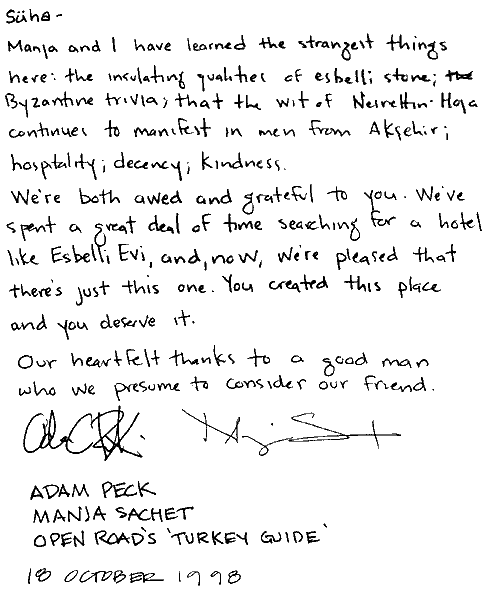 Süha -
Manja and I have learned the strangest things
here: the insulating qualities of esbelli stone;
Byzantine trivia; that the wit of Nesrettin Hoja
continues to manifest in men from Akşehir;
hospitality; decency; kindness.
We're both awed and grateful to you. We've
spent a great deal of time searching for a hotel
like Esbelli Evi, and, now, we're pleased that
there's just this one. You created this place
and you deserve it.
Our heartfelt thanks to a good man
who we presume to consider our friend.
ADAM PECK
MANJA SACHET
OPEN ROAD'S 'TURKEY GUIDE'
18 OCTOBER 1998